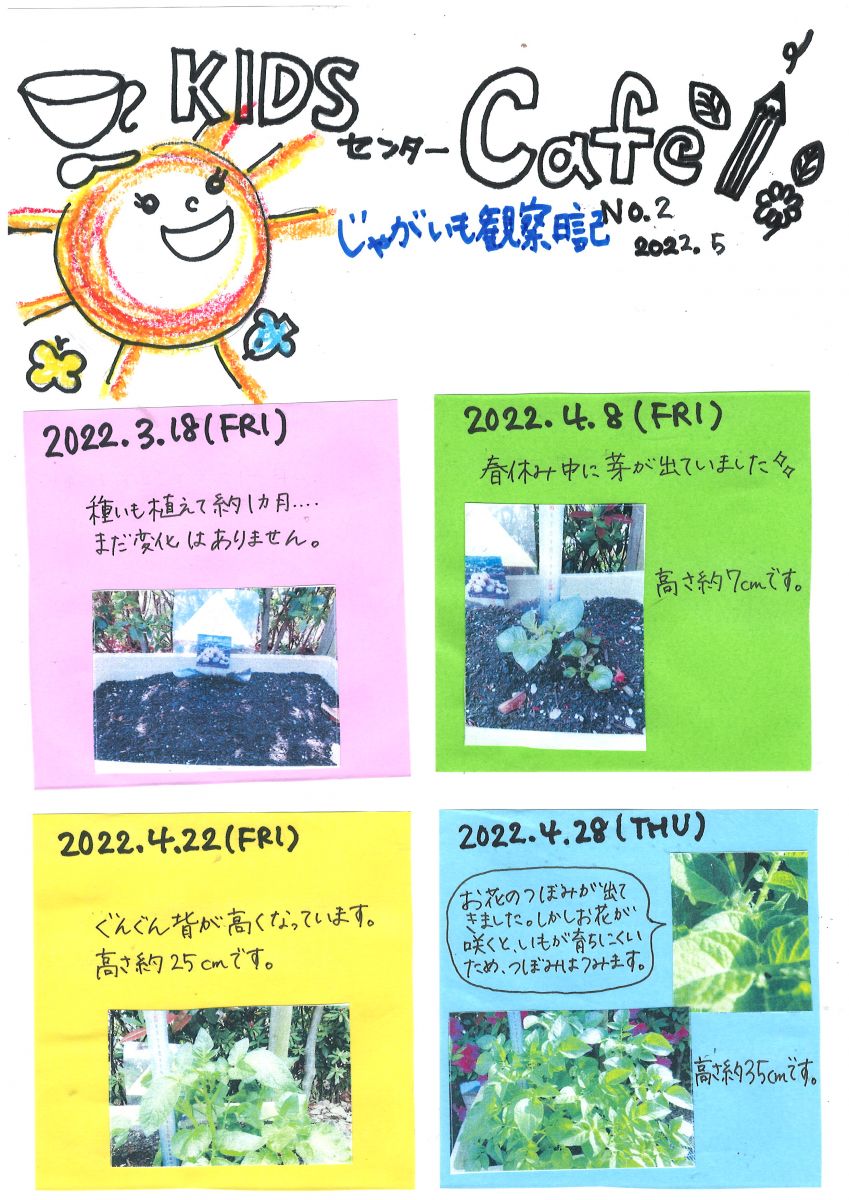 KIDS
センター Cafe
じゃがいも観察日記 No.2
2022.5
2022.3.18(FRI)
種いも植えて約1カ月....
まだ変化はありません。
2022.4.8(FRI)
春休み中に芽が出ていました
高さ約7cmです。
2022.4.22(FRI)
ぐんぐん背が高くなっています。
高さ約25cmです。
2022.4.28(THU)
お花のつぼみが出て
きました。しかしお花が
咲くと、いもが育ちにくい
ため、つぼみはつみます。
高さ約35cmです。